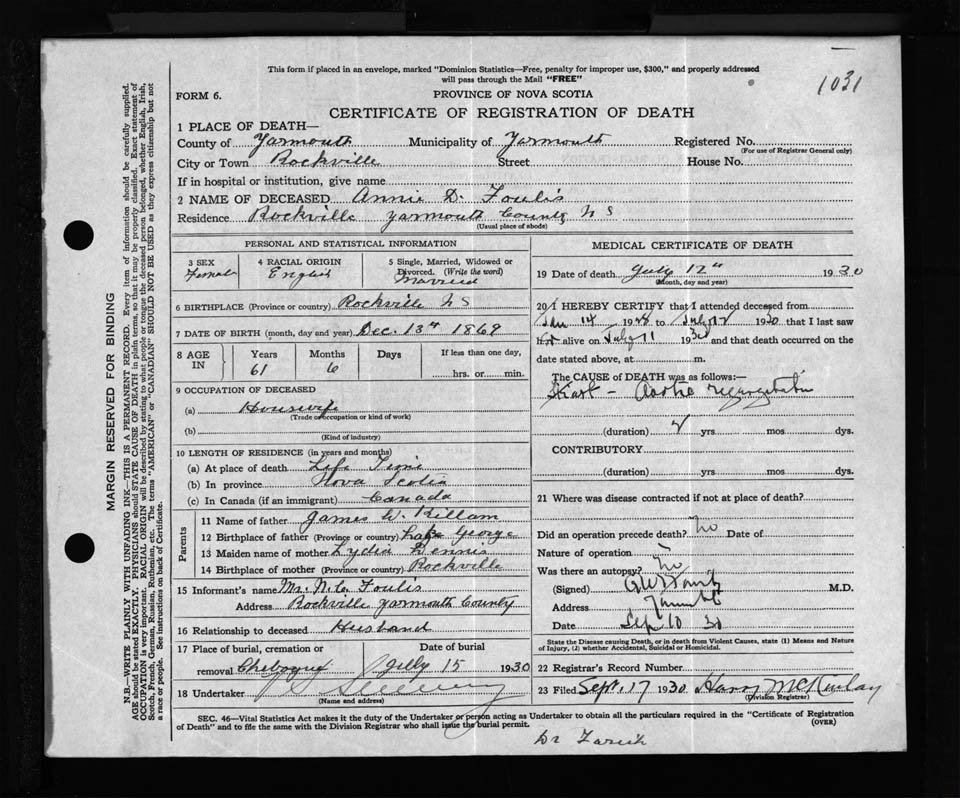 1031
This form if placed in an envelope, marked "Dominion Statistics—Free, penalty for improper use, $300," and properly addressed
will pass through the Mail "FREE"
FORM 6.
PROVINCE OF NOVA SCOTIA
CERTIFICATE OF REGISTRATION OF DEATH
1 PLACE OF DEATH—
County of Yarmouth Municipality of Yarmouth Registered No.
(For use of Registrar General only)
City or Town Rockville Street House No.
If in hospital or institution, give name
2 NAME OF DECEASED Annie D. Foulis
Residence Rockville Yarmouth County N S
(Usual place of abode)
MARGIN RESERVED FOR BINDING
N.B.—WRITE PLAINLY WITH UNFADING INK—THIS IS A PERMANENT RECORD. Every item of information should be carefully supplied.
AGE should be stated EXACTLY. PHYSICIANS should STATE CAUSE OF DEATH in plain terms, so that it may be properly classified. Exact statement of
OCCUPATION is very important. RACIAL ORIGIN will be described by stating to what people or tongue the deceased person belonged, whether English, Irish,
Scotch, French, German, Russian, Ruthenian, etc. The terms "AMERICAN" or "CANADIAN" SHOULD NOT BE USED as they express citizenship but not
a race or people. See instructions on back of Certificate.
PERSONAL AND STATISTICAL INFORMATION
3 SEX
Female
4 RACIAL ORIGIN
English
5 Single, Married, Widowed or
Divorced. (Write the word)
Married
6 BIRTHPLACE (Province or country) Rockville N S
7 DATE OF BIRTH (month, day and year) Dec. 13th 1869
8 AGE IN
Years Months Days If less than one day,
61 6 hrs. or min.
9 OCCUPATION OF DECEASED
(a) Housewife
(Trade or occupation or kind of work)
(b)
(Kind of industry)
10 LENGTH OF RESIDENCE (in years and months)
(a) At place of death Life Time
(b) In province Nova Scotia
(c) In Canada (if an immigrant) Canada
Parents
11 Name of father James W. Killam
12 Birthplace of father (Province or country) Lake George
13 Maiden name of mother Lydia Dennis
14 Birthplace of mother (Province or country) Rockville
15 Informant's name Mr. N. C. Foulis
Address Rockville Yarmouth County
16 Relationship to deceased Husband
17 Place of burial, cremation or Date of burial
removal Chebogue July 15 1930
18 Undertaker
(Name and address)
MEDICAL CERTIFICATE OF DEATH
19 Date of death July 12th 1930
(Month, day and year)
20 I HEREBY CERTIFY that I attended deceased from
Jan 14 1928 to July 12 1930 that I last saw
her alive on July 11 1930 and that death occurred on the
date stated above, at m.
The CAUSE OF DEATH was as follows:—
Heart — Aortic regurgitation
(duration) 2 yrs mos dys.
CONTRIBUTORY
(duration) yrs mos dys.
21 Where was disease contracted if not at place of death?
Did an operation precede death? No Date of
Nature of operation
Was there an autopsy? No
(Signed) M.D.
Address Yarmouth
Date Sept 10 30
State the Disease causing Death, or in death from Violent Causes, state (1) Means and Nature
of Injury, (2) whether Accidental, Suicidal or Homicidal.
22 Registrar's Record Number
23 Filed Sept. 17 1930 Harry McKinlay
(Division Registrar)
SEC. 46—Vital Statistics Act makes it the duty of the Undertaker or person acting as Undertaker to obtain all the particulars required in the "Certificate of Registration
of Death" and to file the same with the Division Registrar who shall issue the burial permit.
(OVER)
Dr Farish